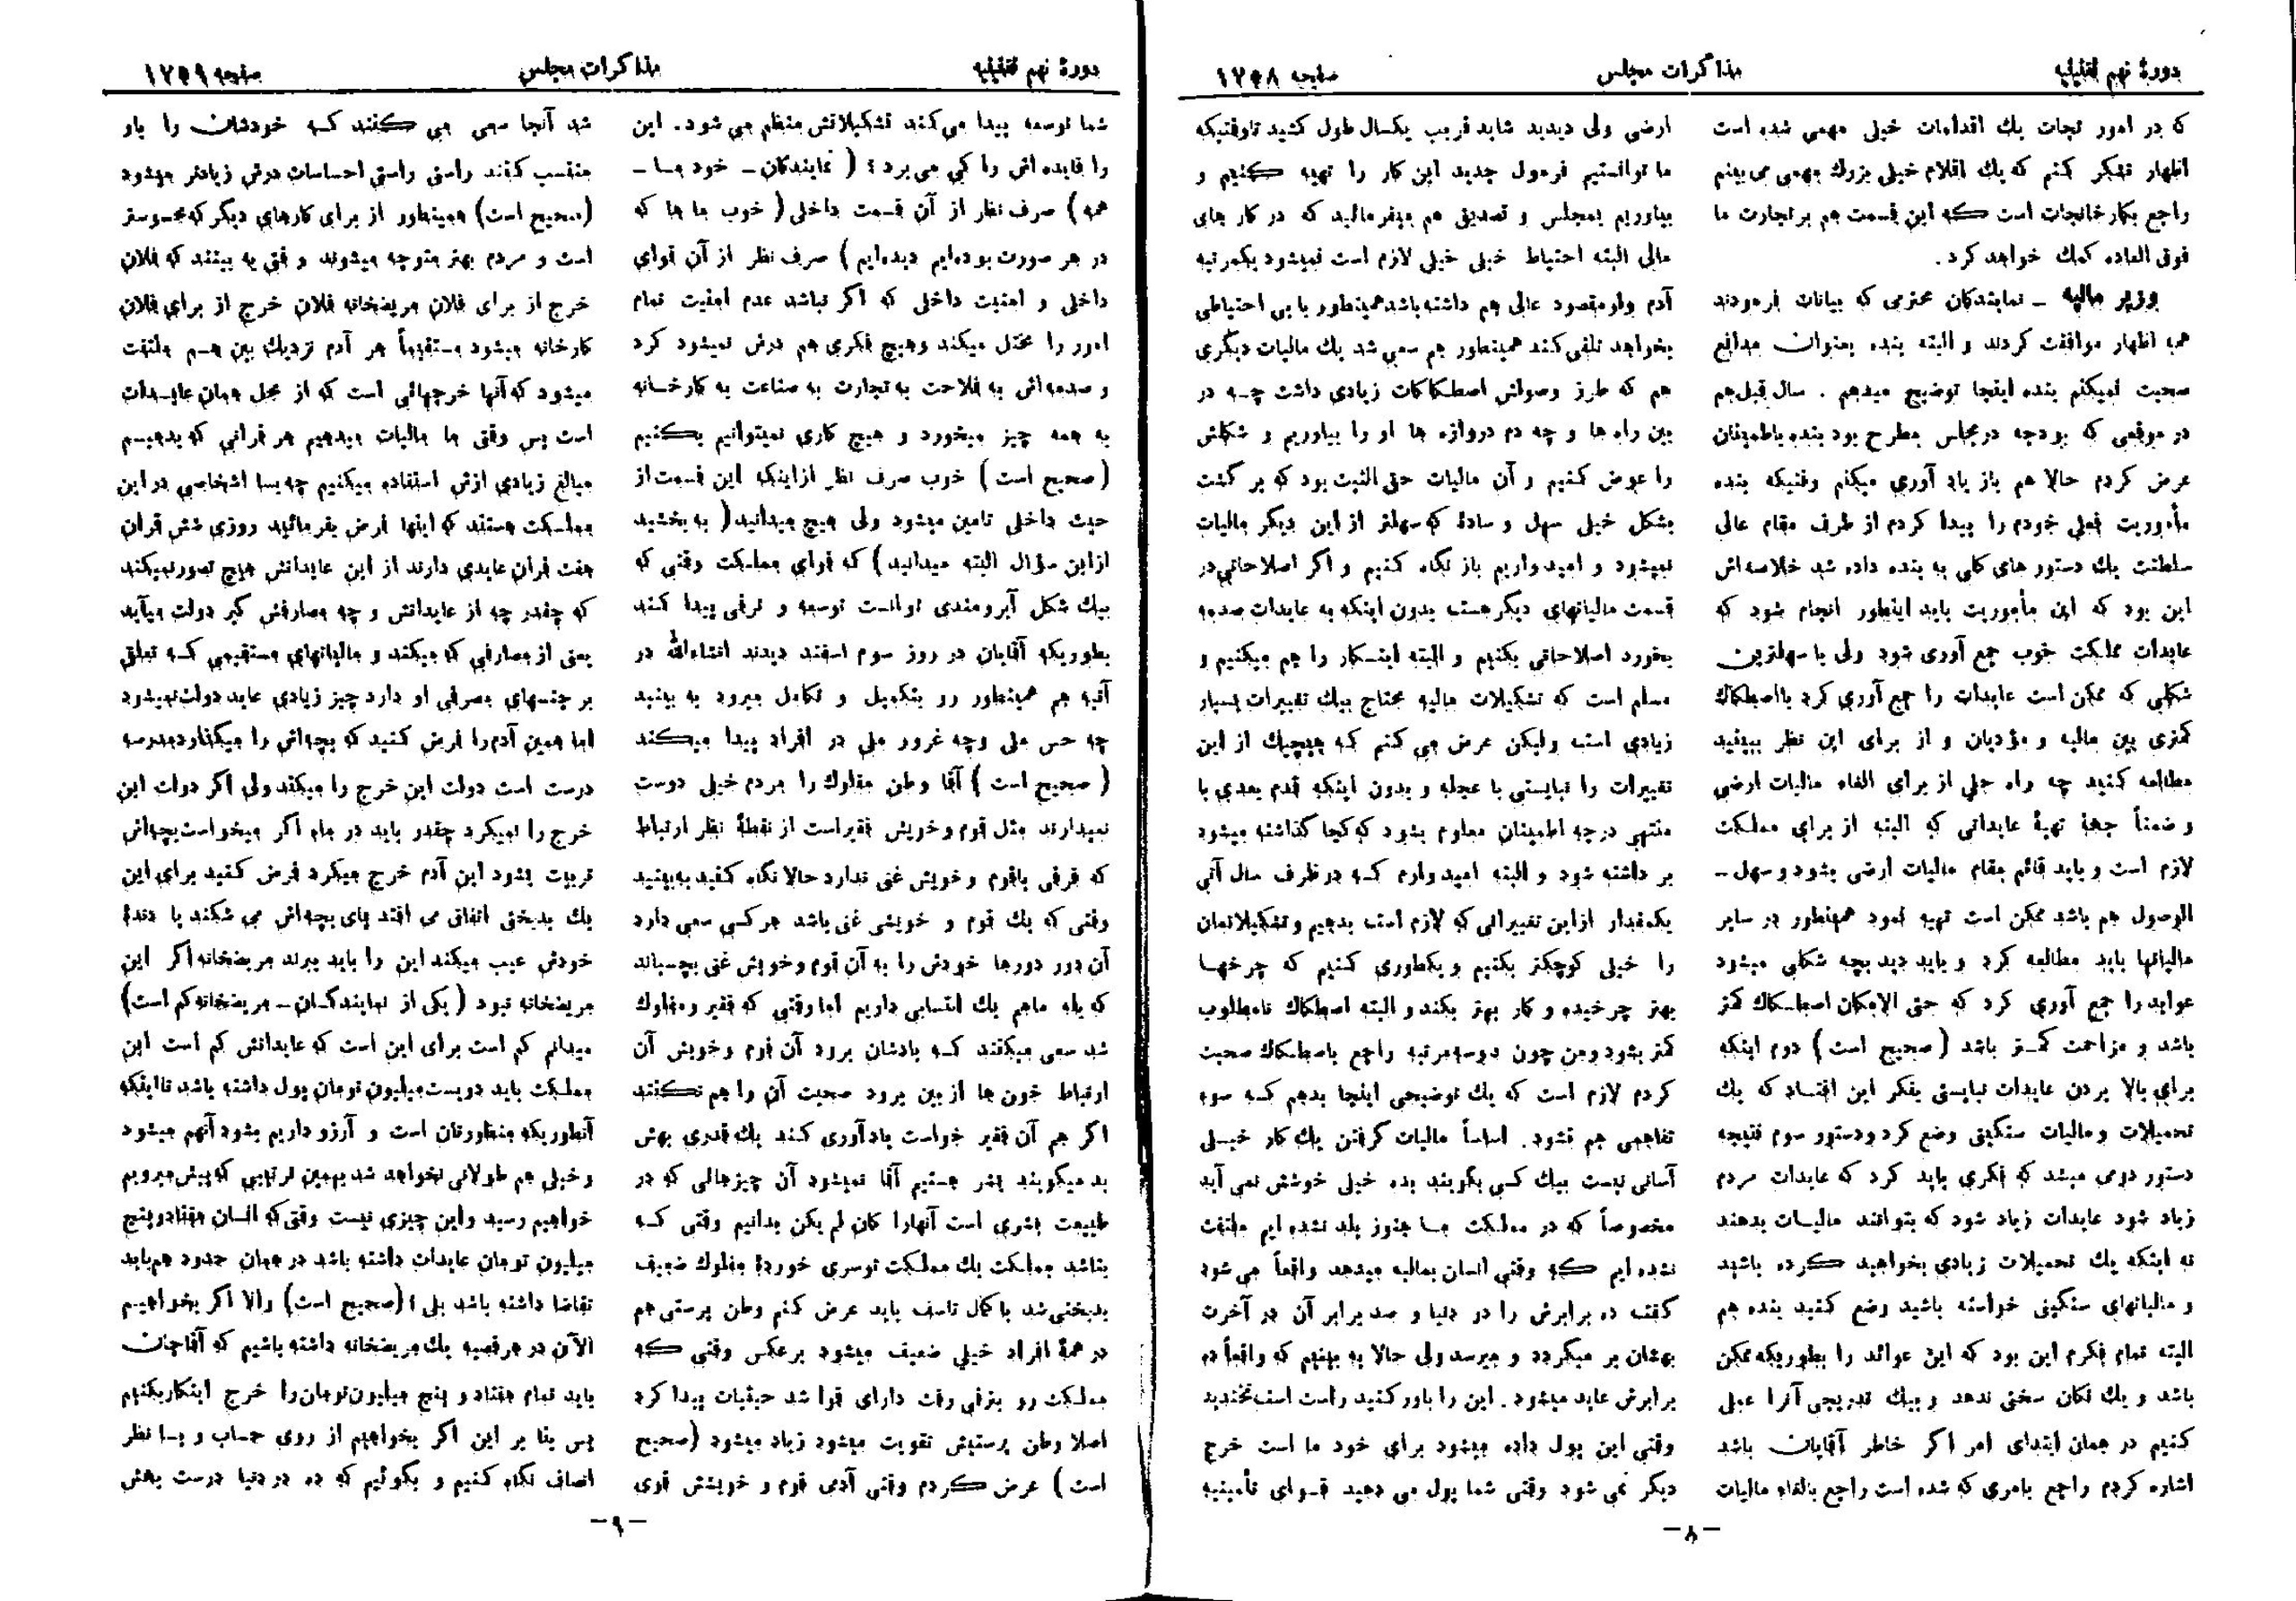 دورهٔ نهم تقنینیه
مذاکرات مجلس
صفحه ۱۷۵۸
که در امور تجات یك اقدامات خیلی مهمی شده است
اظهار تشکر کنم که یك اقلام خیلی بزرك مهمی می بینم
راجع بکارخانجات است که این قسمت هم بر تجارت ما
فوق العاده کمك خواهد کرد .
وزیر مالیه ـ نمایندکان محترمی که بیانات فرمودند
همه اظهار موافقت کردند و البته بنده بعنوان مدافع
صحبت نمیکنم بنده اینجا توضیح میدهم . سال قبل هم
در موقعی که بودجه در مجلس مطرح بود بنده باطمینان
عرض کردم حالا هم باز یاد آوری میکنم وقتیکه بنده
مأموریت فعلی خودم را پیدا کردم از طرف مقام عالی
سلطنت یك دستور های کلی به بنده داده شد خلاصه اش
این بود که این مأموریت باید اینطور انجام شود که
عایدات مملکت خوب جمع آوری شود ولی با سهلترین
شکلی که ممکن است عایدات را جمع آوری کرد بااصطکاك
کمتری بین مالیه و مؤدیان و از برای این نظر ببینید
مطالعه کنید چه راه حلی از برای الغاء مالیات ارضی
و ضمناً جهة تهیهٔ عایداتی که البته از برای مملکت
لازم است و باید قائم مقام مالیات ارضی بشود و سهل ـ
الوصول هم باشد ممکن است تهیه نمود همینطور در سایر
مالیاتها باید مطالعه کرد و باید دید بچه شکلی میشود
عواید را جمع آوری کرد که حتی الامکان اصطکاك کمتر
باشد و مزاحمت کمتر باشد ( صحیح است ) دوم اینکه
برای بالا بردن عایدات نبایستی بفکر این افتاد که یك
تحمیلات و مالیات سنگینی وضع کرد و دستور سوم نتیجه
دستور دومی میشد که فکری باید کرد که عایدات مردم
زیاد شود عایدات زیاد شود که بتوانند مالیات بدهند
نه اینکه یك تحمیلات زیادی بخواهید کرده باشید
و مالیاتهای سنگینی خواسته باشید وضع کنید بنده هم
البته تمام فکرم این بود که این عوائد را بطوریکه ممکن
باشد و یك تکان سختی ندهد و بیك تدریجی آنرا عملی
کنیم در همان ابتدای امر اگر خاطر آقایان باشد
اشاره کردم راجع بامری که شده است راجع بالغاء مالیات
ارضی ولی دیدید شاید قریب یکسال طول کشید تاوقتیکه
ما توانستیم فرمول جدید این کار را تهیه کنیم و
بیاوریم بمجلس و تصدیق هم میفرمائید که در کار های
مالی البته احتیاط خیلی خیلی لازم است نمیشود یکمرتبه
آدم ولو مقصود عالی هم داشته باشد همینطور با بی احتیاطی
بخواهد تلقی کند همینطور هم سعی شد یك مالیات دیگری
هم که طرز وصولش اصطکاکات زیادی داشت چه در
بین راه ها و چه دم دروازه ها او را بیاوریم و شکلش
را عوض کنیم و آن مالیات حق الثبت بود که بر گشت
بشکل خیلی سهل و سادهٔ که سهلتر از این دیگر مالیات
نمیشود و امیدواریم باز نگاه کنیم و اگر اصلاحاتی در
قسمت مالیاتهای دیگر هست بدون اینکه به عایدات صدمه
بخورد اصلاحاتی بکنیم و البته اینکار را هم میکنیم و
مسلم است که تشکیلات مالیه محتاج بیك تغییرات بسیار
زیادی است ولیکن عرض می کنم که هیچیك از این
تغییرات را نبایستی با عجله و بدون اینکه قدم بعدی با
منتهی درجه اطمینان معلوم بشود که کجا گذاشته میشود
بر داشته شود و البته امیدوارم که در ظرف سال آتی
یکمقدار از این تغییراتی که لازم است بدهیم و تشکیلاتمان
را خیلی کوچکتر بکنیم و یکطوری کنیم که چرخها
بهتر چرخیده و کار بهتر بکند و البته اصطکاك نامطلوب
کمتر بشود ومن چون دو سه مرتبه راجع باصطکاك صحبت
کردم لازم است که یك توضیحی اینجا بدهم که سوء
تفاهمی هم نشود. اساساً مالیات گرفتن یك کار خیلی
آسانی نیست بیك کسی بگویند بده خیلی خوشش نمی آید
مخصوصاً که در مملکت ما هنوز بلد نشده ایم ملتفت
نشده ایم که وقتی انسان بمالیه میدهد واقعاً می شود
گفت ده برابرش را در دنیا و صد برابر آن در آخرت
بهشان بر میگردد و میرسد ولی حالا به بینیم که واقعاً ده
برابرش عاید میشود . این را باور کنید راست است نخندید
وقتی این پول داده میشود برای خود ما است خرج
دیگر نمی شود وقتی شما پول می دهید قوای تأمینیه
ـ ۸ ـ
دورهٔ نهم تقنینیه
مذاکرات مجلس
صفحه ۱۷۵۹
شما توسعه پیدا می کند تشکیلاتش منظم می شود . این
را فایده اش را کی می برد ؟ ( نمایندکان ـ خود ما ـ
همه ) صرف نظر از آن قسمت داخلی ( خوب ما ها که
در هر صورت بوده ایم دیده ایم ) صرف نظر از آن قوای
داخلی و امنیت داخلی که اگر نباشد عدم امنیت تمام
امور را مختل میکند وهیچ فکری هم درش نمیشود کرد
و صدمه اش به فلاحت به تجارت به صناعت به کارخانه
به همه چیز میخورد و هیچ کاری نمیتوانیم بکنیم
( صحیح است ) خوب صرف نظر ازاینکه این قسمت از
حیث داخلی تامین میشود ولی هیچ میدانید ( به بخشید
ازاین سؤال البته میدانید ) که قوای مملکت وقتی که
بیك شکل آبرومندی توانست توسعه و ترقی پیدا کند
بطوریکه آقایان در روز سوم اسفند دیدند انشاءالله در
آتیه هم همینطور رو بتکمیل و تکامل میرود به بینید
چه حس ملی وچه غرور ملی در افراد پیدا میکند
( صحیح است ) آقا وطن مفلوك را مردم خیلی دوست
نمیدارند مثل قوم و خویش فقیر است از نقطهٔ نظر ارتباط
که فرقی باقوم و خویش غنی ندارد حالا نگاه کنید به بینید
وقتی که یك قوم و خویشی غنی باشد هر کسی سعی دارد
آن دور دورها خودش را به آن قوم و خویش غنی بچسباند
که بله ماهم یك انتسابی داریم اما وقتی که فقیر و مفلوك
شد سعی میکنند که یادشان برود آن قوم و خویش آن
ارتباط خون ها از بین برود صحبت آن را هم نکنند
اگر هم آن فقیر خواست یادآوری کند یك قدری بهش
بد میگویند بشر هستیم آقا نمیشود آن چیزهائی که در
طبیعت بشری است آنهارا کان لم یکن بدانیم وقتی که
بناشد مملکت یك مملکت توسری خوردهٔ مفلوك ضعیف
بدبختی شد با کمال تاسف باید عرض کنم وطن پرستی هم
در همهٔ افراد خیلی ضعیف میشود برعکس وقتی که
مملکت رو بترقی رفت دارای قوا شد حیثیات پیدا کرد
اصلا وطن پرستیش تقویت میشود زیاد میشود (صحیح
است ) عرض کردم وقتی آدم قوم و خویشش قوی
شد آنجا سعی می کنند که خودشان را باو
منتسب کنند راستی راستی احساسات درش زیادتر میشود
(صحیح است) همینطور از برای کارهای دیگر که محسوستر
است و مردم بهتر متوجه میشوند وقتی به بینند که فلان
خرج از برای فلان مریضخانه فلان خرج از برای فلان
کارخانه میشود مستقیماً هر آدم نزدیك بین هم ملتفت
میشود که آنها خرجهائی است که از محل همان عایدات
است پس وقتی ما مالیات میدهیم هر قرانی که بدهیم
مبالغ زیادی ازش استفاده میکنیم چه بسا اشخاصی در این
مملکت هستند که اینها فرض بفرمائید روزی شش قران
هفت قران عایدی دارند از این عایداتش هیچ تصور نمیکند
که چقدر چه از عایداتش و چه مصارفش گیر دولت میآید
یعنی از مصارفی که میکند و مالیاتهای مستقیمی که تعلق
بر جنسهای مصرفی او دارد چیز زیادی عاید دولت نمیشود
اما همین آدم را فرض کنید که بچه اش را میگذارد مدرسه
درست است دولت این خرج را میکند ولی اگر دولت این
خرج را نمیکرد چقدر باید در ماه اگر میخواست بچه اش
تربیت بشود این آدم خرج میکرد فرض کنید برای این
یك بدبختی اتفاق می افتد پای بچه اش می شکند یا دندهٔ
خودش عیب میکند این را باید ببرند مریضخانه اگر این
مریضخانه نبود ( یکی از نمایندگان ـ مریضخانه کم است)
میدانم کم است برای این است که عایداتش کم است این
مملکت باید دویست میلیون تومان پول داشته باشد تا اینکه
آنطوریکه منظورتان است و آرزو داریم بشود آنهم میشود
و خیلی هم طولانی نخواهد شد بهمین ترتیبی که پیش میرویم
خواهیم رسید و این چیزی نیست وقتی که انسان هفتاد و پنج
میلیون تومان عایدات داشته باشد در همان حدود هم باید
تقاضا داشته باشد بلی ؟ (صحیح است) والا اگر بخواهیم
الآن در هر قصبه یك مریضخانه داشته باشیم که آقاجان
باید تمام هفتاد و پنج میلیون تومان را خرج اینکار بکنیم
پس بنا بر این اگر بخواهیم از روی حساب و با نظر
انصاف نگاه کنیم و بگوئیم که ده در دنیا درست بهش
ـ ۹ ـ